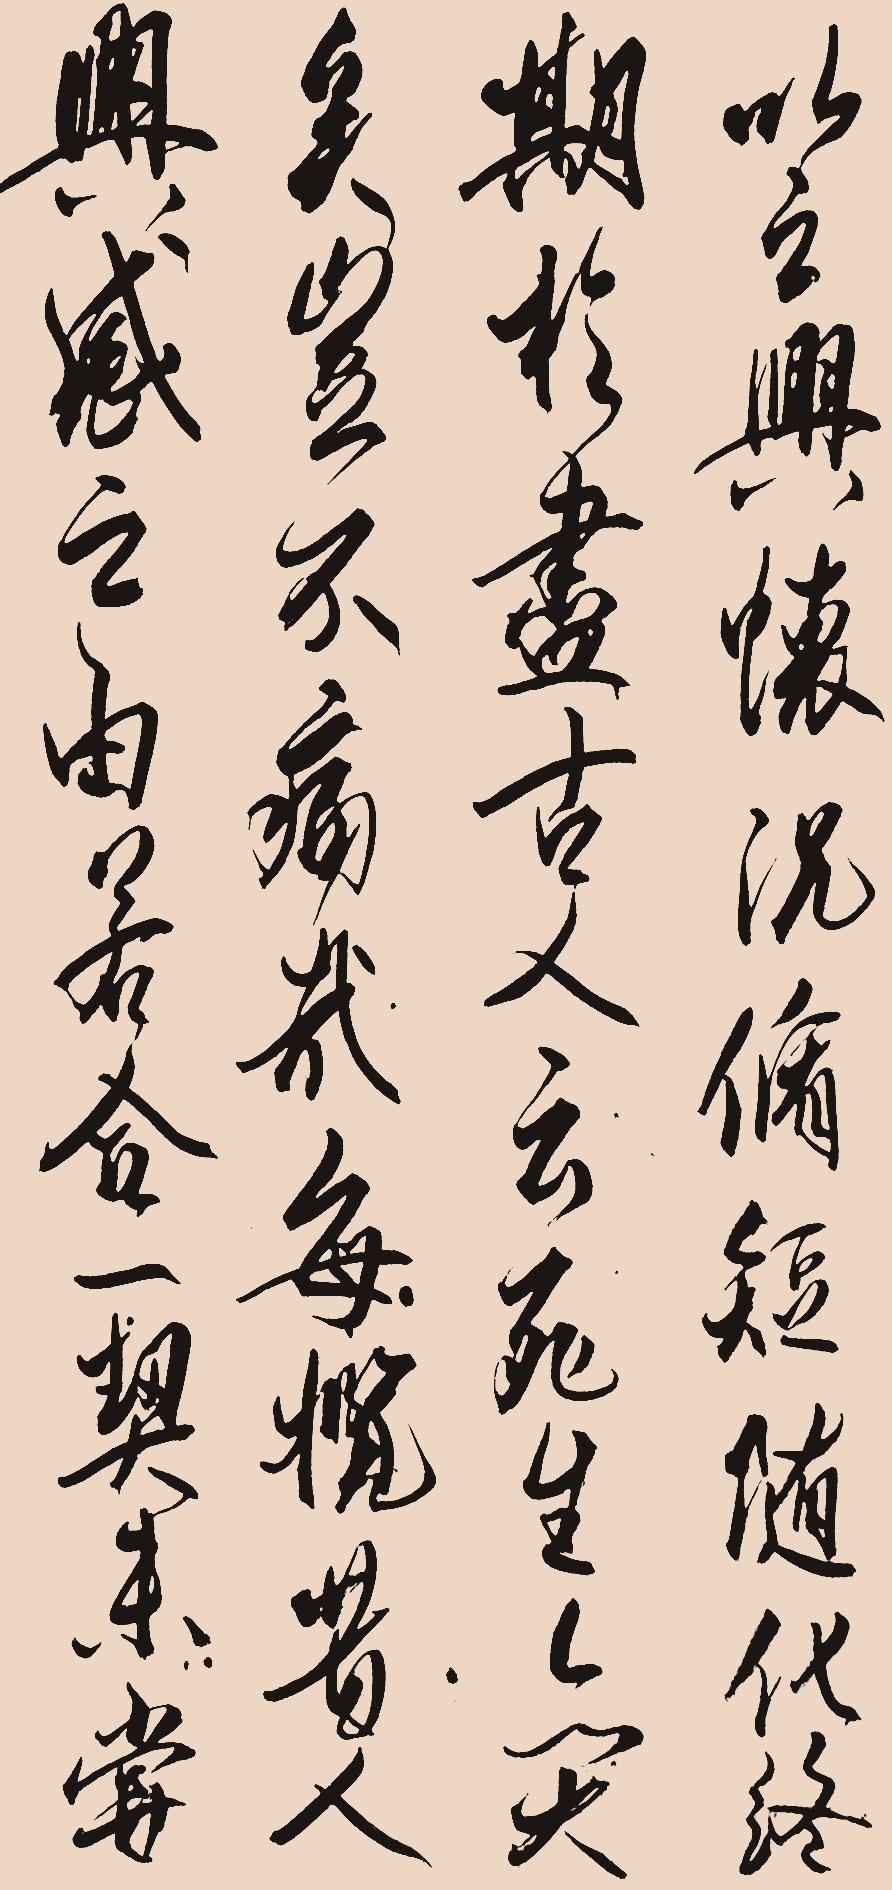 以之興懷況脩短隨化終
期於盡古人云死生亦大
矣豈不痛哉每攬昔人
興感之由若合一契未嘗